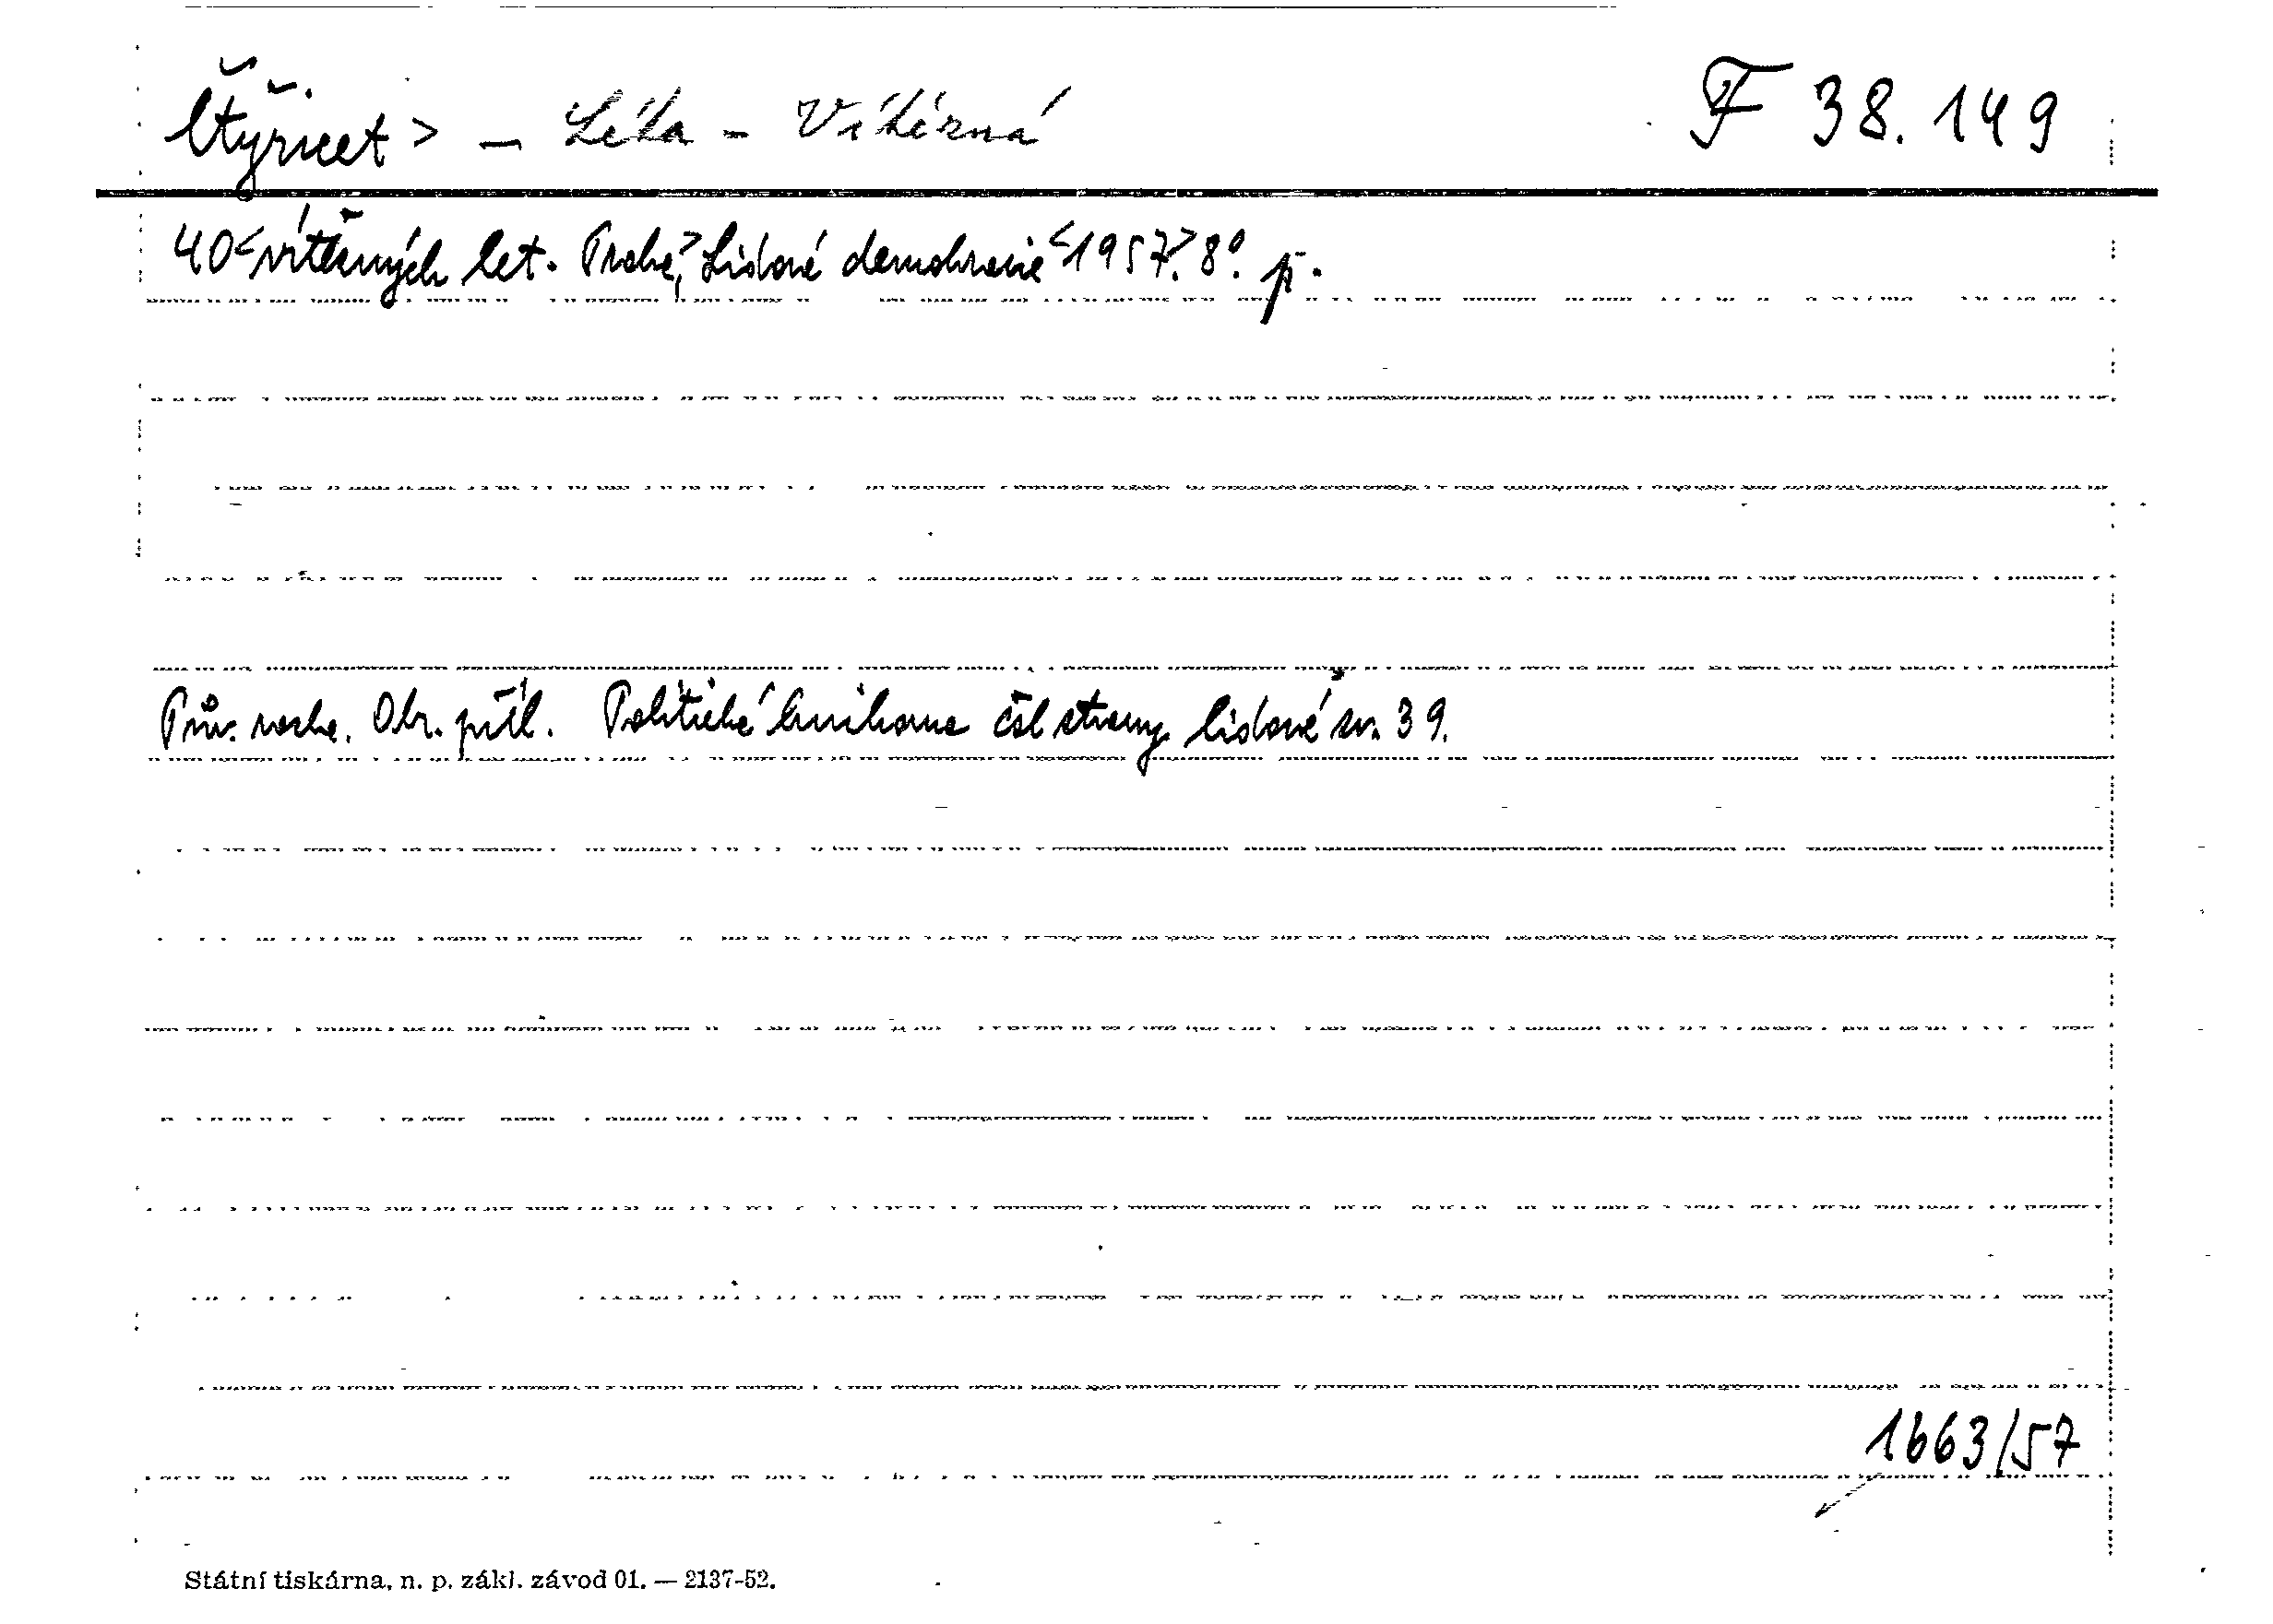 Čtyřicet> – Léta – Vítězná F 38.149
40<vítězných let. Praha,> Lidová demokracie <1957.> 8°. p.
Prův. rozhl. Obr. příl. Politická knihovna čsl strany lidové sv. 39.
1663/57
Státní tiskárna, n. p. zákl. závod 01. — 2137-52.